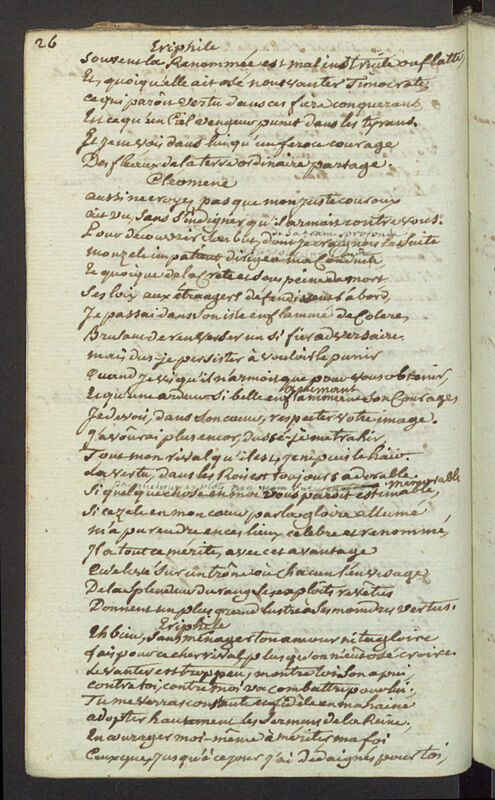 26
Eriphile
Souvent la Renommée est mal instruite ou flatte,
Et, quoiqu'elle ait osé nous vanter Timocrate
ce qui paroit vertu dans ces fiers conquerans
Est ce qu'un Ciel vengeur punit dans les tyrans.
Et je ne vois dans lui qu'un feroce courage
Des fleaux de la terre ordinaire partage.
Cleomene
aussi ne croyez pas que mon juste couroux
ait vu, sans s'indigner qu'il s'armoit contre vous.
de sa trame profonde
Pour découvrir le but, dont je craignois la suite
mon zele impatient dirigea ma Conduite
Et quoique de la Crete et sous peine de mort
Ses loix aux étrangers défendissent l'abord,
Je passai dans son isle enflammé de Colere,
Brulant de renverser un si fier adversaire.
mais dus-je persister à vouloir le punir
Quand je vis qu'il n'armoit que pour vous obtenir,
Et qu'une ardeur si belle animant son Courage
Je devois, dans son coeur, respecter votre image.
J'avoûrai plus encor, dussé-je me trahir,
Tout mon rival qu'il est, je ne puis le haïr.
La vertu, dans les Rois est toujours adorable.
memorable
Si quelque chose en moi vous paroit estimable,
Si ce zele en mon coeur par la gloire allumé
m'a pu rendre en ces lieux célebre et renommé,
Il a tout ce mérite, avec cet avantage
Qu'elevé sur un trône où chacun l'envisage
De la splendeur du rang ses exploits revêtus
Donnent un plus grand lustre à ses moindres vertus.
Eriphile
Eh bien, sans ménager ton amour ni ta gloire
fais pour ce cher rival, plus qu'on n'eut osé croire.
le vanter est trop peu, montre toi son apui
contre toi, contre moi va combattre pour lui.
Tu me verras constante et fidèle en ma haine
adopter hautement les Sermens de la Reine,
Encourager moi-même à mériter ma foi
Ceux que, jusqu'à ce jour j'ai dédaignés pour toi,